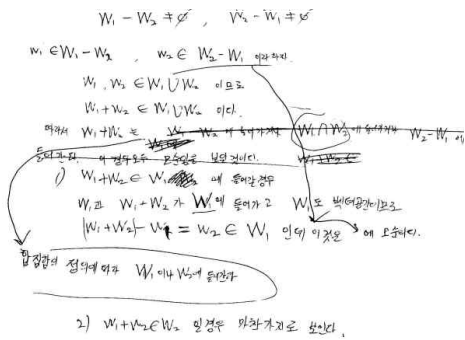 W₁ - W₂ ≠ ∅ , W₂ - W₁ ≠ ∅
w₁ ∈ W₁ - W₂ , w₂ ∈ W₂ - W₁ 이라 하자.
w₁, w₂ ∈ W₁ ∪ W₂ 이므로
w₁ + w₂ ∈ W₁ ∪ W₂ 이다.
따라서 w₁ + w₂ 는 W₁ ∩ W₂ W₂ - W₁ 에
이 경우 모두 모순임을 보인 것이다.
1) w₁ + w₂ ∈ W₁ 에 들어갈 경우
w₁과 w₁ + w₂ 가 W₁에 들어가고 W₁도 벡터공간이므로
(w₁ + w₂) - w₁ = w₂ ∈ W₁ 인데 이것은 에 모순이다.
합집합의 정의에 따라 W₁ 이나 W₂에 들어간다
2) w₁ + w₂ ∈ W₂ 일 경우 마찬가지로 보인다.